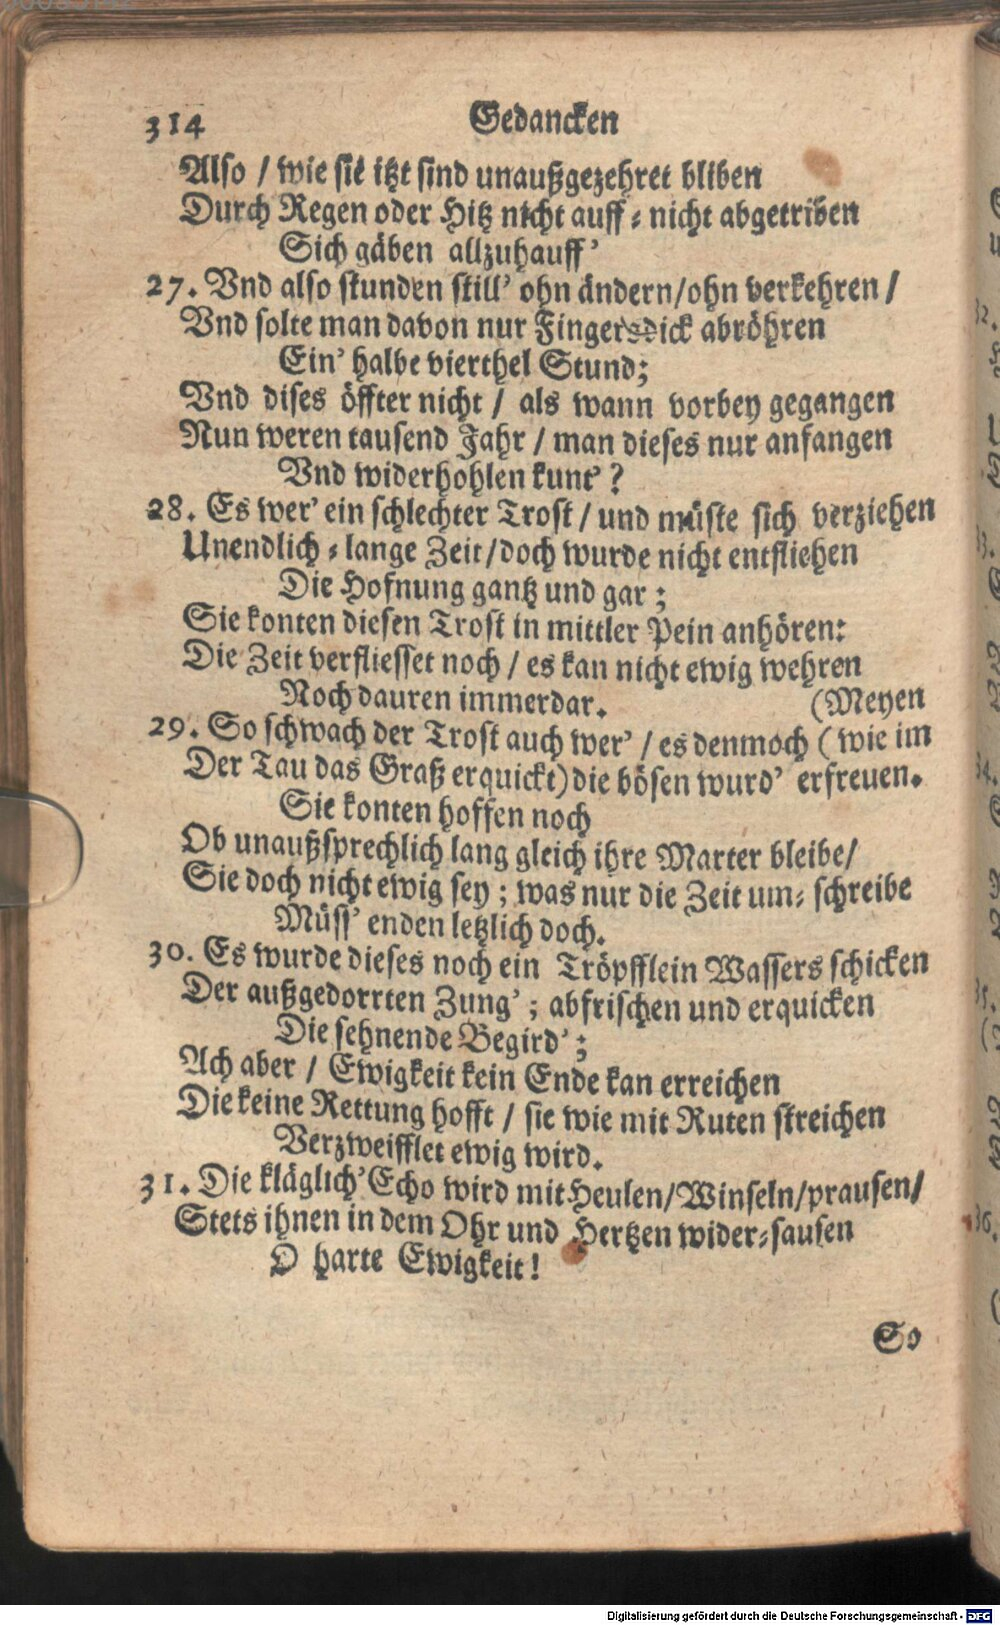 314 Gedancken
Also / wie sie itzt sind unaußgezehret bliben
Durch Regen oder Hitz nicht auff- nicht abgetriben
Sich gäben allzuhauff'
27. Vnd also stunden still' ohn ändern/ohn verkehren /
Vnd solte man davon nur Fingersdick abröhren
Ein' halbe vierthel Stund;
Vnd dises öffter nicht / als wann vorbey gegangen
Nun weren tausend Jahr / man dieses nur anfangen
Vnd widerhohlen kunt' ?
28. Es wer' ein schlechter Trost / und müste sich verziehen
Unendlich-lange Zeit/doch wurde nicht entfliehen
Die Hofnung gantz und gar ;
Sie konten diesen Trost in mittler Pein anhören:
Die Zeit verfliesset noch / es kan nicht ewig wehren
Noch dauren immerdar. (Meyen
29. So schwach der Trost auch wer' / es dennoch ( wie im
Der Tau das Graß erquickt) die bösen wurd' erfreuen.
Sie konten hoffen noch
Ob unaußsprechlich lang gleich ihre Marter bleibe/
Sie doch nicht ewig sey ; was nur die Zeit um-schreibe
Müss' enden letzlich doch.
30. Es wurde dieses noch ein Tröpfflein Wassers schicken
Der außgedorrten Zung' ; abfrischen und erquicken
Die sehnende Begird' ;
Ach aber / Ewigkeit kein Ende kan erreichen
Die keine Rettung hofft / sie wie mit Ruten streichen
Verzweifflet ewig wird.
31. Die kläglich' Echo wird mit Heulen/Winseln/prausen/
Stets ihnen in dem Ohr und Hertzen wider-sausen
O harte Ewigkeit!
So
Digitalisierung gefördert durch die Deutsche Forschungsgemeinschaft - DFG